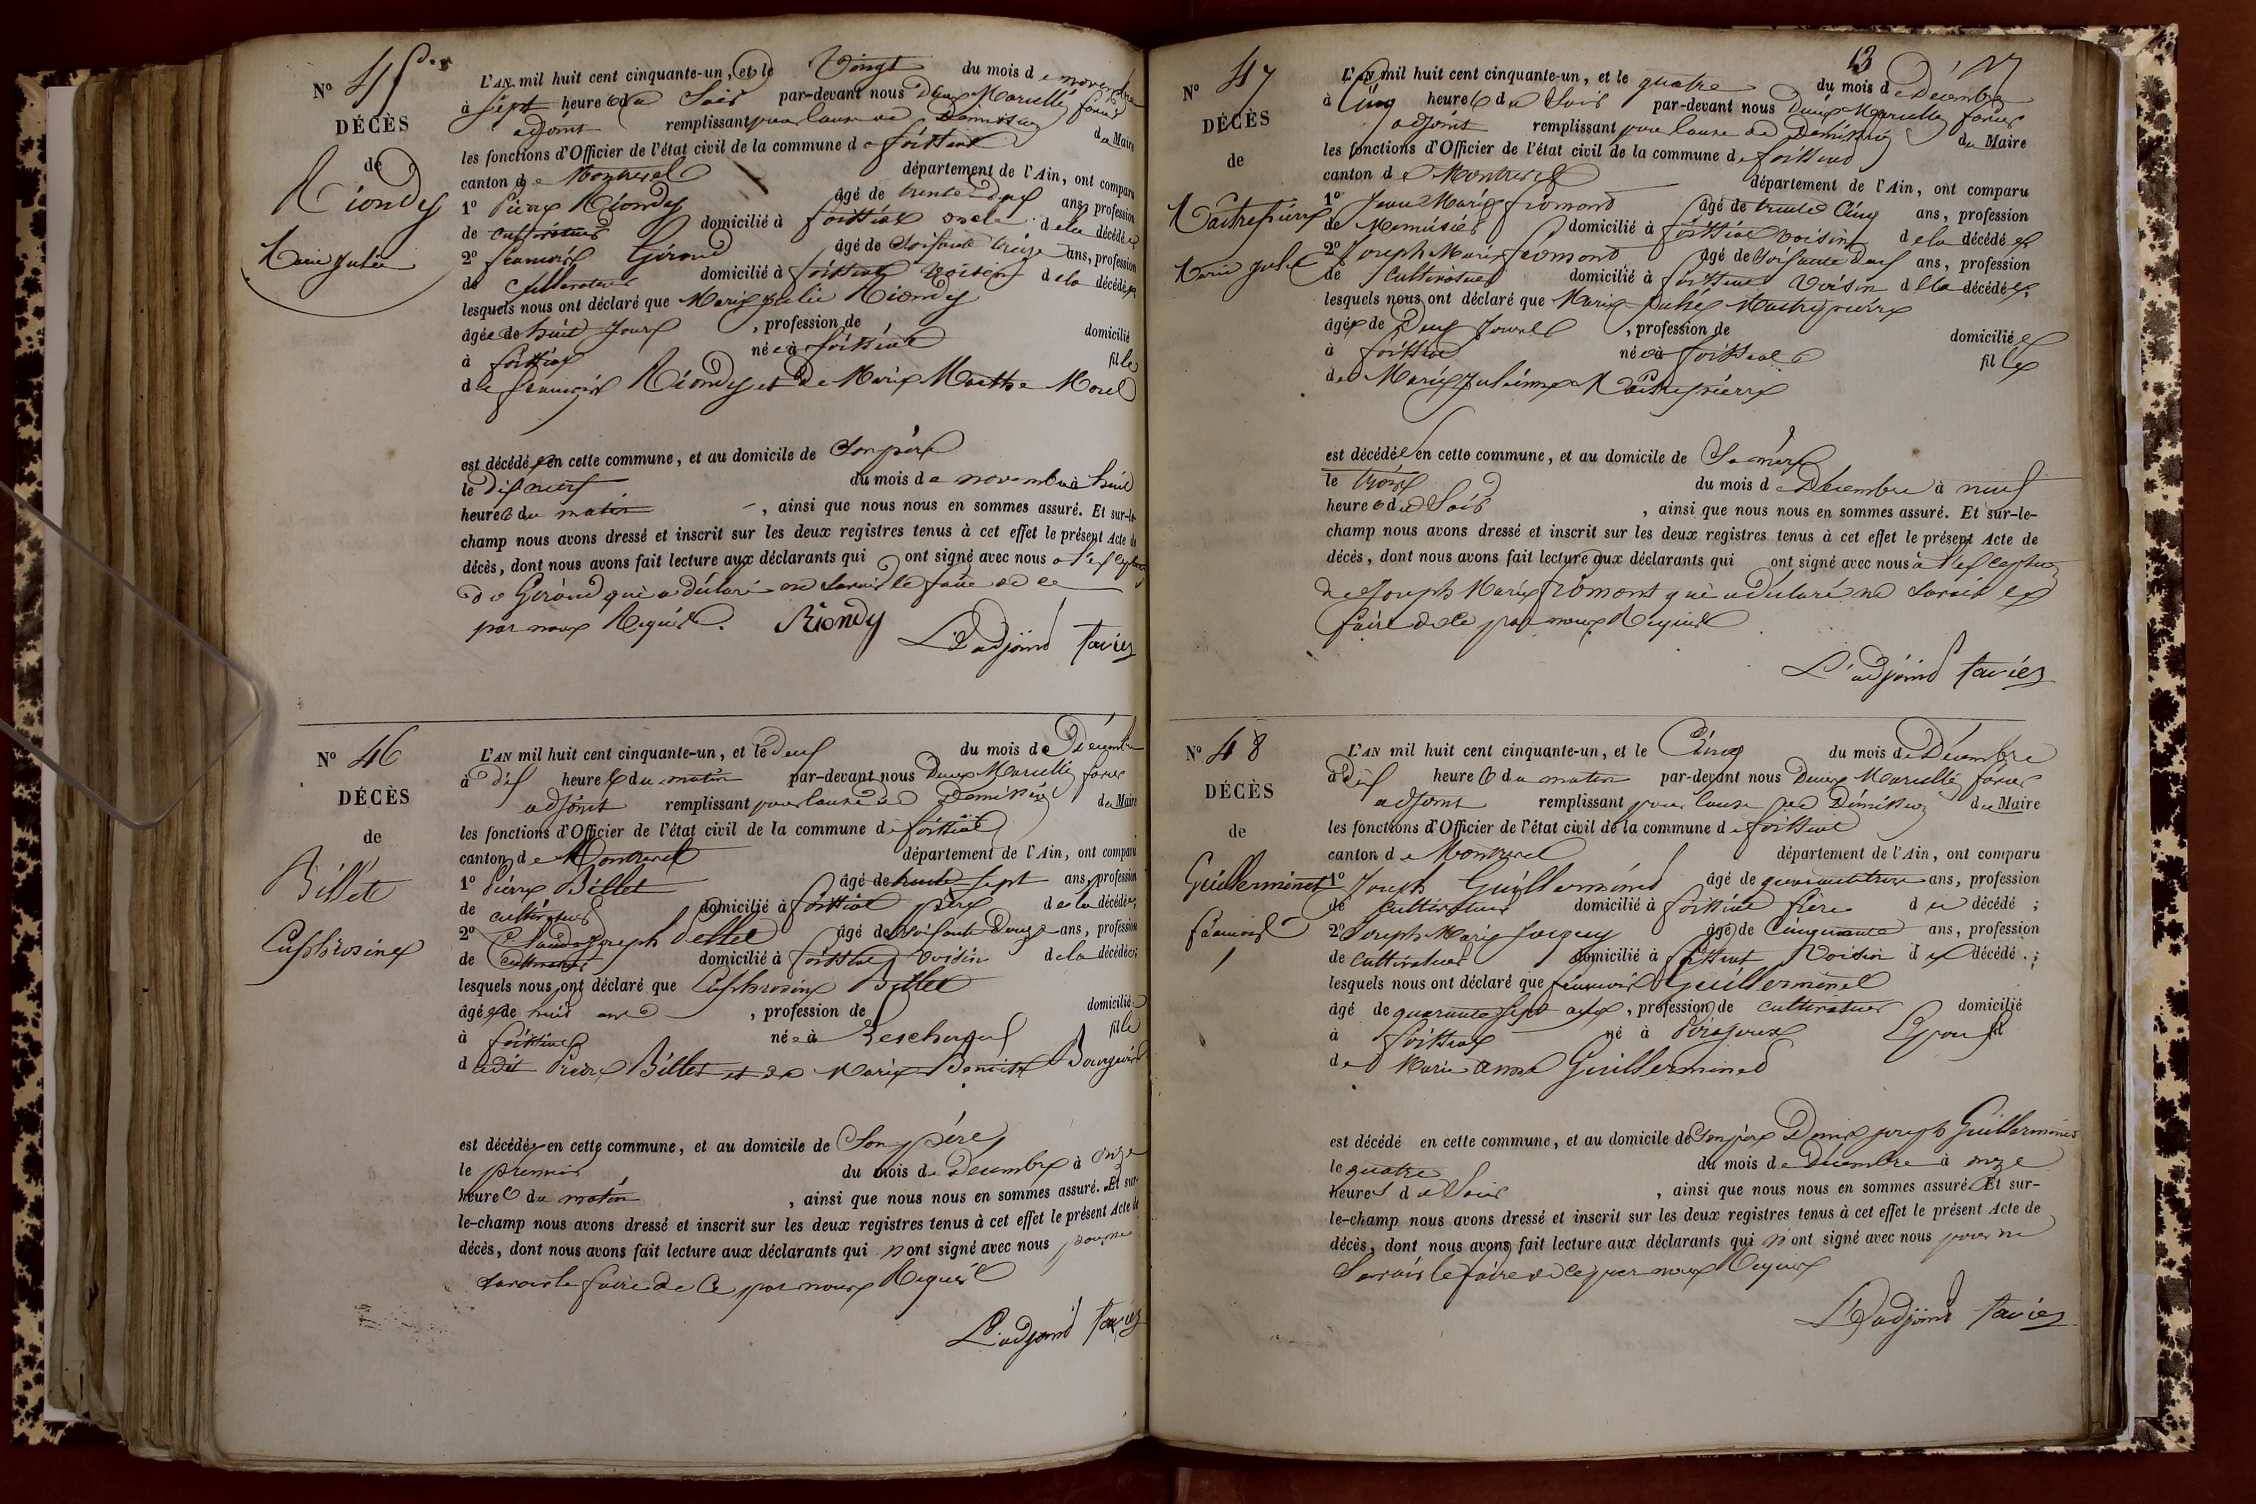 N° 45
DÉCÈS
de
Riondy
Marie Julie
L'AN mil huit cent cinquante-un, et le Vingt du mois de novembre
à sept heures du Soir par-devant nous Marcelle favier
adjoint remplissant pour cause de Demission du Maire
les fonctions d'Officier de l'état civil de la commune de foissiat
canton de Montrevel département de l'Ain, ont comparu
1° Pierre Riondy âgé de trente deux ans, profession
de cultivateur domicilié à foissiat oncle de la décédée
2° francois Giroud âgé de Soixante treize ans, profession
de cultivateur domicilié à foissiat voisin de la décédée
lesquels nous ont déclaré que Marie julie Riondy
âgée de huit Jours , profession de domicilié
à foissiat née à foissiat fille
de francois Riondy et de Marie Marthe Morel
est décédée en cette commune, et au domicile de Son père
le dix neuf du mois de novembre à huit
heures du matin , ainsi que nous nous en sommes assuré. Et sur-le-
champ nous avons dressé et inscrit sur les deux registres tenus à cet effet le présent Acte de
décès, dont nous avons fait lecture aux déclarants qui ont signé avec nous a l'exception
de Giroud qui a déclaré ne savoir le faire de ce
par nous Requis. Riondy
L'adjoint favier
N° 46
DÉCÈS
de
Billet
Euphrosine
L'AN mil huit cent cinquante-un, et le deux du mois de Décembre
à dix heures du matin par-devant nous Marcelle favier
adjoint remplissant pour cause de Demission du Maire
les fonctions d'Officier de l'état civil de la commune de foissiat
canton de Montrevel département de l'Ain, ont comparu
1° Pierre Billet âgé de trente sept ans, profession
de cultivateur domicilié à foissiat père de la décédée;
2° Claude Joseph âgé de Soixante Douze ans, profession
de cultivateur domicilié à foissiat voisin de la décédée;
lesquels nous ont déclaré que Euphrosine Billet
âgée de huit ans , profession de domiciliée
à foissiat née à Lescheroux fille
dudit Pierre Billet et de Marie Benoite Bourgeois
est décédée en cette commune, et au domicile de Son père
le premier du mois de Décembre à onze
heures du matin , ainsi que nous nous en sommes assuré. Et sur-
le-champ nous avons dressé et inscrit sur les deux registres tenus à cet effet le présent Acte de
décès, dont nous avons fait lecture aux déclarants qui n'ont signé avec nous pour ne
savoir le faire de Ce par nous Requis
L'adjoint favier
13
N° 47
DÉCÈS
de
Maitrepierre
Marie Julie
L'AN mil huit cent cinquante-un, et le quatre du mois de Décembre
à Cinq heures du Soir par-devant nous Marcelle favier
adjoint remplissant pour cause de Démission du Maire
les fonctions d'Officier de l'état civil de la commune de foissiat
canton de Montrevel département de l'Ain, ont comparu
1° Jean Marie fromont âgé de trente Cinq ans, profession
de Menuisier domicilié à foissiat voisin de la décédée
2° Joseph Marie fromont âgé de Soixante deux ans, profession
de Cultivateur domicilié à foissiat Voisin de la décédée;
lesquels nous ont déclaré que Marie Julie Maitrepierre
âgée de Deux Jours , profession de domiciliée
à foissiat née à foissiat fille
de Marie Julienne Maitrepierre
est décédée en cette commune, et au domicile de Sa mère
le trois du mois de Décembre à neuf
heures du Soir , ainsi que nous nous en sommes assuré. Et sur-le-
champ nous avons dressé et inscrit sur les deux registres tenus à cet effet le présent Acte de
décès, dont nous avons fait lecture aux déclarants qui ont signé avec nous à l'exception
de Joseph Marie fromont qui a déclaré ne savoir le
faire de Ce par nous Requis
L'adjoint favier
N° 48
DÉCÈS
de
Guillerminet
francois
L'AN mil huit cent cinquante-un, et le Cinq du mois de Décembre
à dix heures du matin par-devant nous Marcelle favier
adjoint remplissant pour cause de Démission du Maire
les fonctions d'Officier de l'état civil de la commune de foissiat
canton de Montrevel département de l'Ain, ont comparu
1° Joseph Guillerminet âgé de quarante trois ans, profession
de Cultivateur domicilié à foissiat frère du décédé;
2° Joseph Marie Jacquy âgé de Cinquante ans, profession
de Cultivateur domicilié à foissiat Voisin du décédé;
lesquels nous ont déclaré que francois Guillerminet
âgé de quarante sept ans, profession de cultivateur domicilié
à foissiat né à Pirajoux Epoux
de Marie anne Guillerminet
est décédé en cette commune, et au domicile de Son père Denis joseph Guillerminet
le quatre du mois de Décembre à onze
heures du Soir , ainsi que nous nous en sommes assuré. Et sur-
le-champ nous avons dressé et inscrit sur les deux registres tenus à cet effet le présent Acte de
décès, dont nous avons fait lecture aux déclarants qui n'ont signé avec nous pour ne
Savoir le faire de Ce par nous Requis
L'adjoint favier